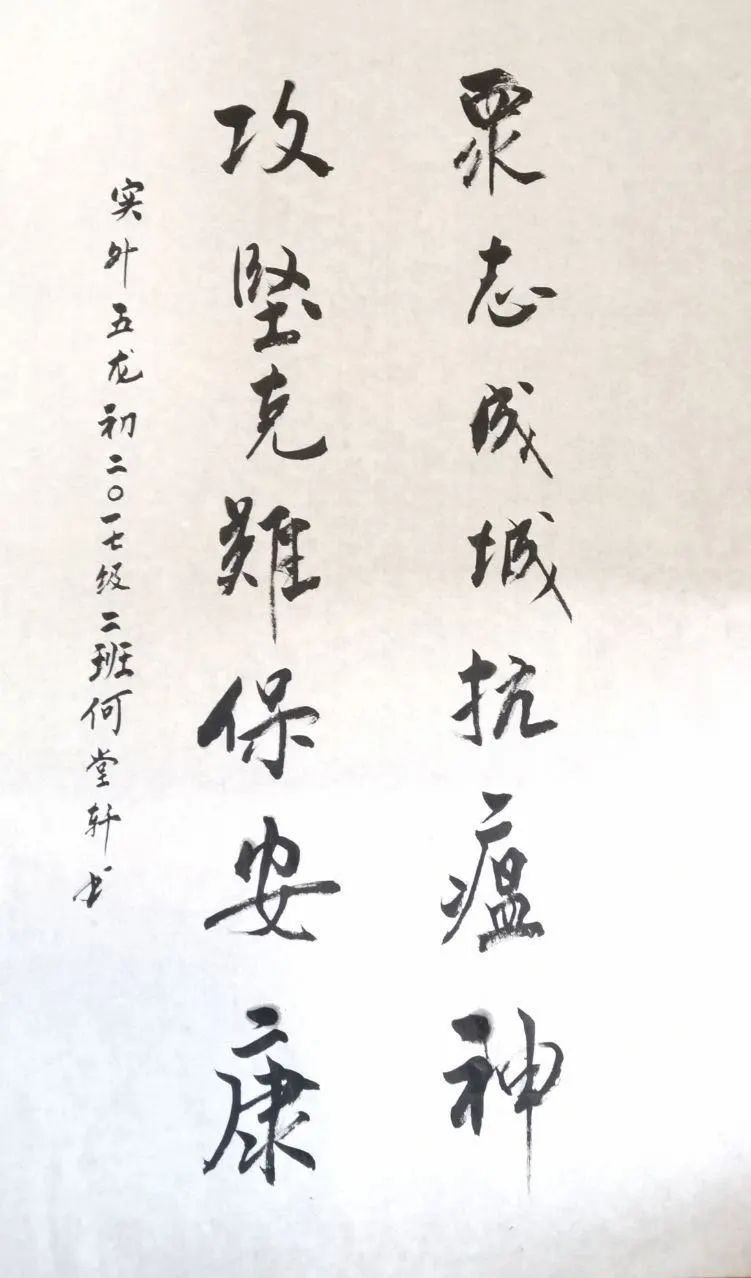 眾志成城抗瘟神
攻堅克難保安康
实外五龙初二〇一七级二班何堂轩书